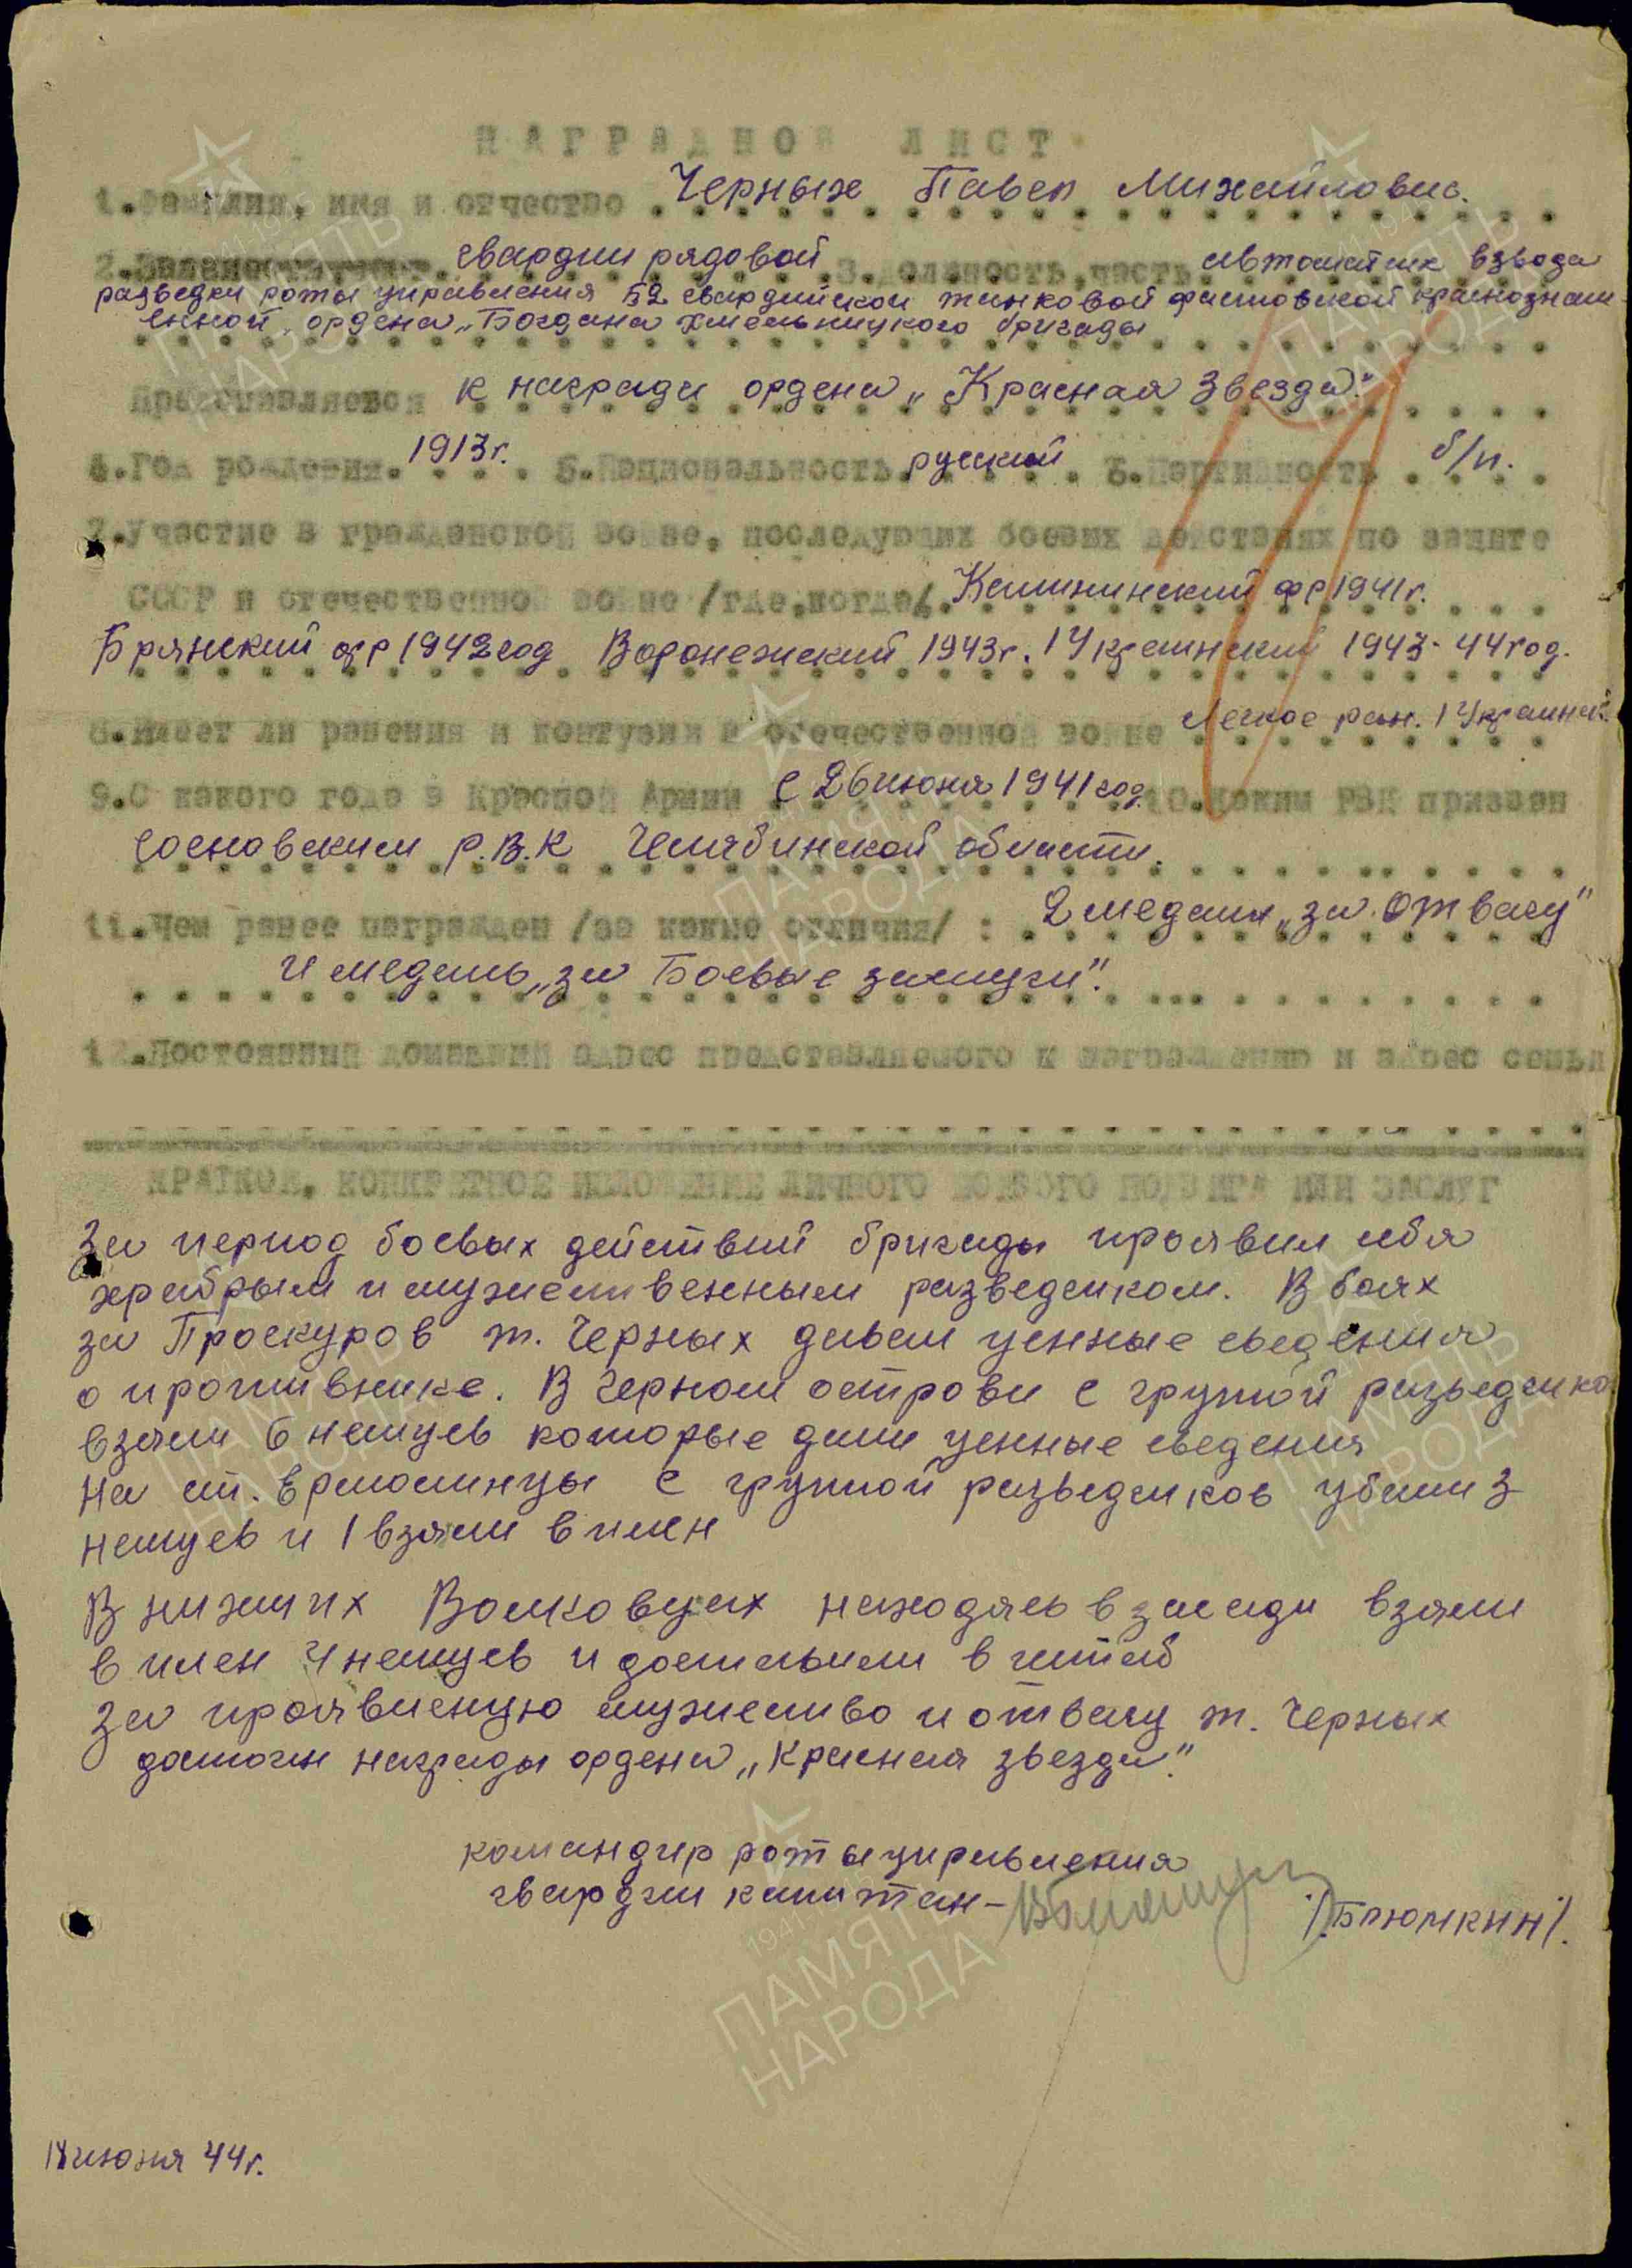 НАГРАДНОЙ ЛИСТ
1.Фамилия, имя и отчество Черных Павел Михайлович.
2.Звание гвардии рядовой 3.Должность,часть автоматчик взвода
разведки роты управления 52 гвардийской танковой фастовской краснознам
енной ордена „Богдана Хмельницкого бригады
Представляется к награди ордена „Красная Звезда."
4.Год рождения. 1913г. 5.Национальность русский 6.Партийность б/п.
7.Участие в гражданской войне, последующих боевых действиях по защите
СССР и отечественной войне /где,когда/. Калининский фр 1941г.
Брянский фр 1942год Воронежский 1943г. 1 Украинский 1943-44год.
8.Имеет ли ранения и контузии в отечественной войне легкое ран. 1 Украинс.
9.С какого года в Красной Армии с 26 июня 1941 год 10.Каким РВК призван
Сосновским Р.В.К Челябинской области.
11.Чем ранее награжден /за какие отличия/ : 2 медали „за Отвагу"
и медаль „за Боевые заслуги".
12.Постоянный домашний адрес представляемого к награждению и адрес семьи
КРАТКОЕ, КОНКРЕТНОЕ ИЗЛОЖЕНИЕ ЛИЧНОГО БОЕВОГО ПОДВИГА ИЛИ ЗАСЛУГ
За период боевых действий бригады проявил себя
храбрым и мужественным разведчиком. В боях
за Проскуров т. Черных давал ценные сведения
о противнике. В Черном острови с групой разведчико
взяли 6 немцев которые дали ценные сведения
На ст. Ярмолинцы с групой разведчиков убили 3
немцев и 1 взяли в плен
В нижних Волковцах находясь в засади взяли
в плен 4 немцев и доставили в штаб
За проявленую мужество и отвагу т. Черных
достоин награды ордена „Красная звезда."
командир роты управления
гвардии капитан-
/Блюмкин/.
ПАМЯТЬ НАРОДА
июня 44г.